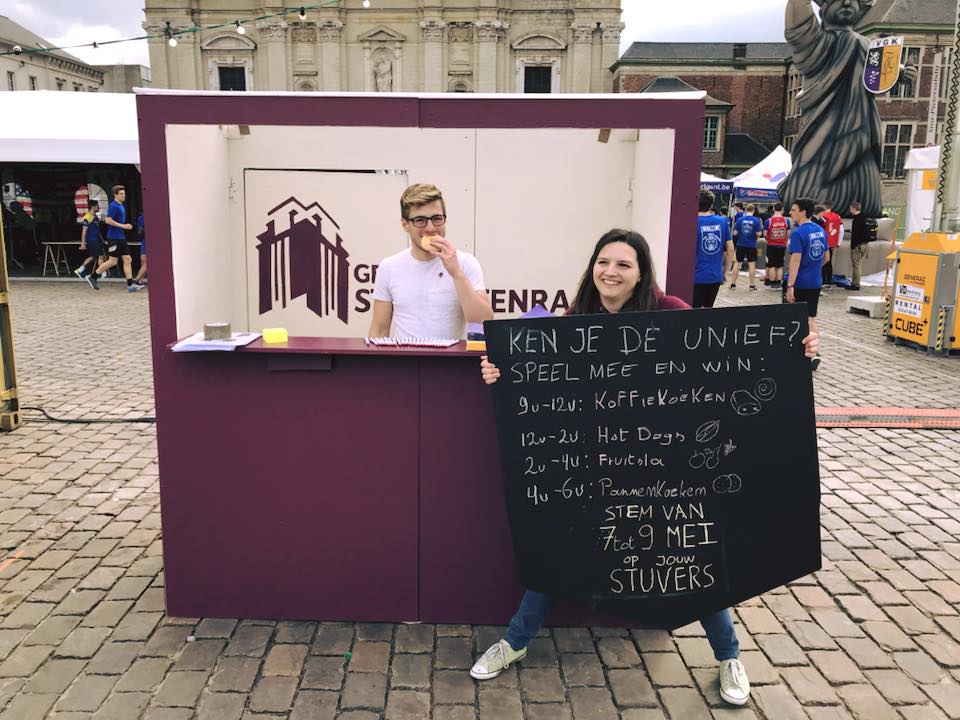 VGK
GE
ST
ENRA
KEN JE DE UNIEF?
SPEEL MEE EN WIN:
9u-12u: KOFFIEKOEKEN
12u-2u: Hot Dogs
2u-4u: Fruitsla
4u-6u: Pannenkoeken
STEM VAN
7 tot 9 MEI
OP JOUW
STUVERS
GENERAC
VD
RENTAL
CUBE+